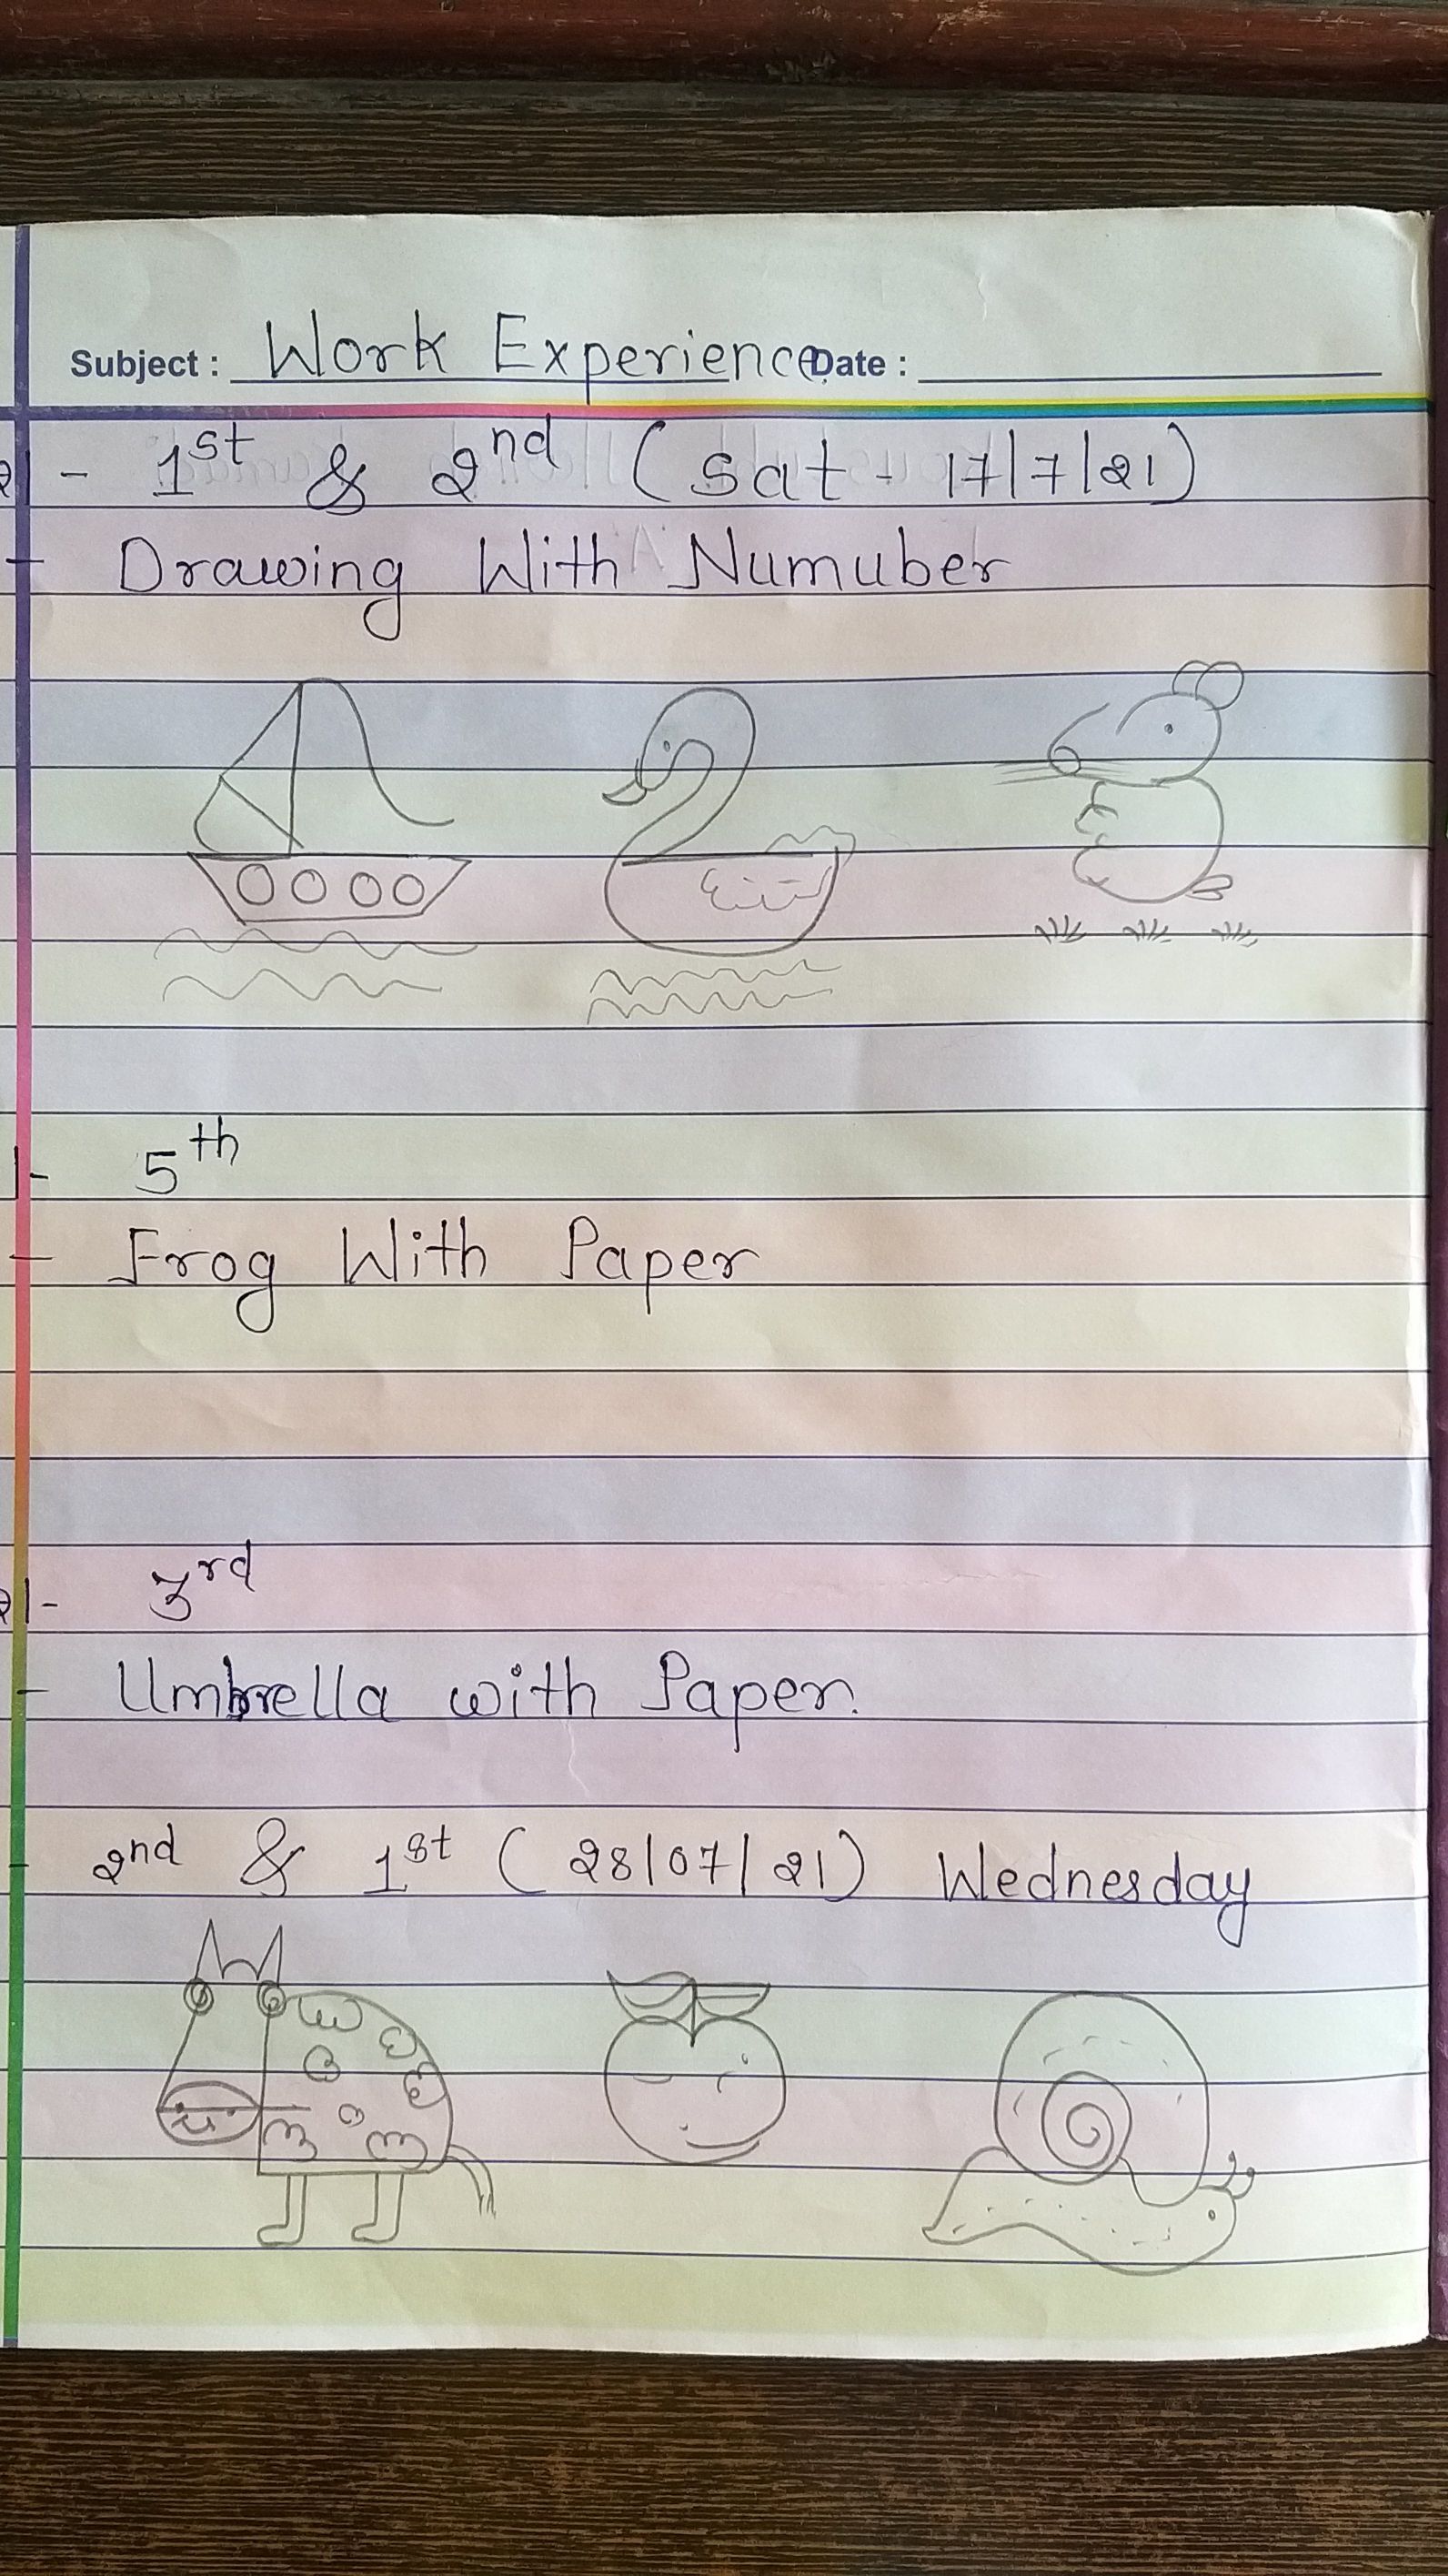 Subject : Work Experience Date :
21 - 1st & 2nd ( Sat - 17/7/21 )
- Drawing With Numuber
- 5th
- Frog With Paper
21- 3rd
- Umbrella with Paper.
- 2nd & 1st ( 28/07/21 ) Wednesday